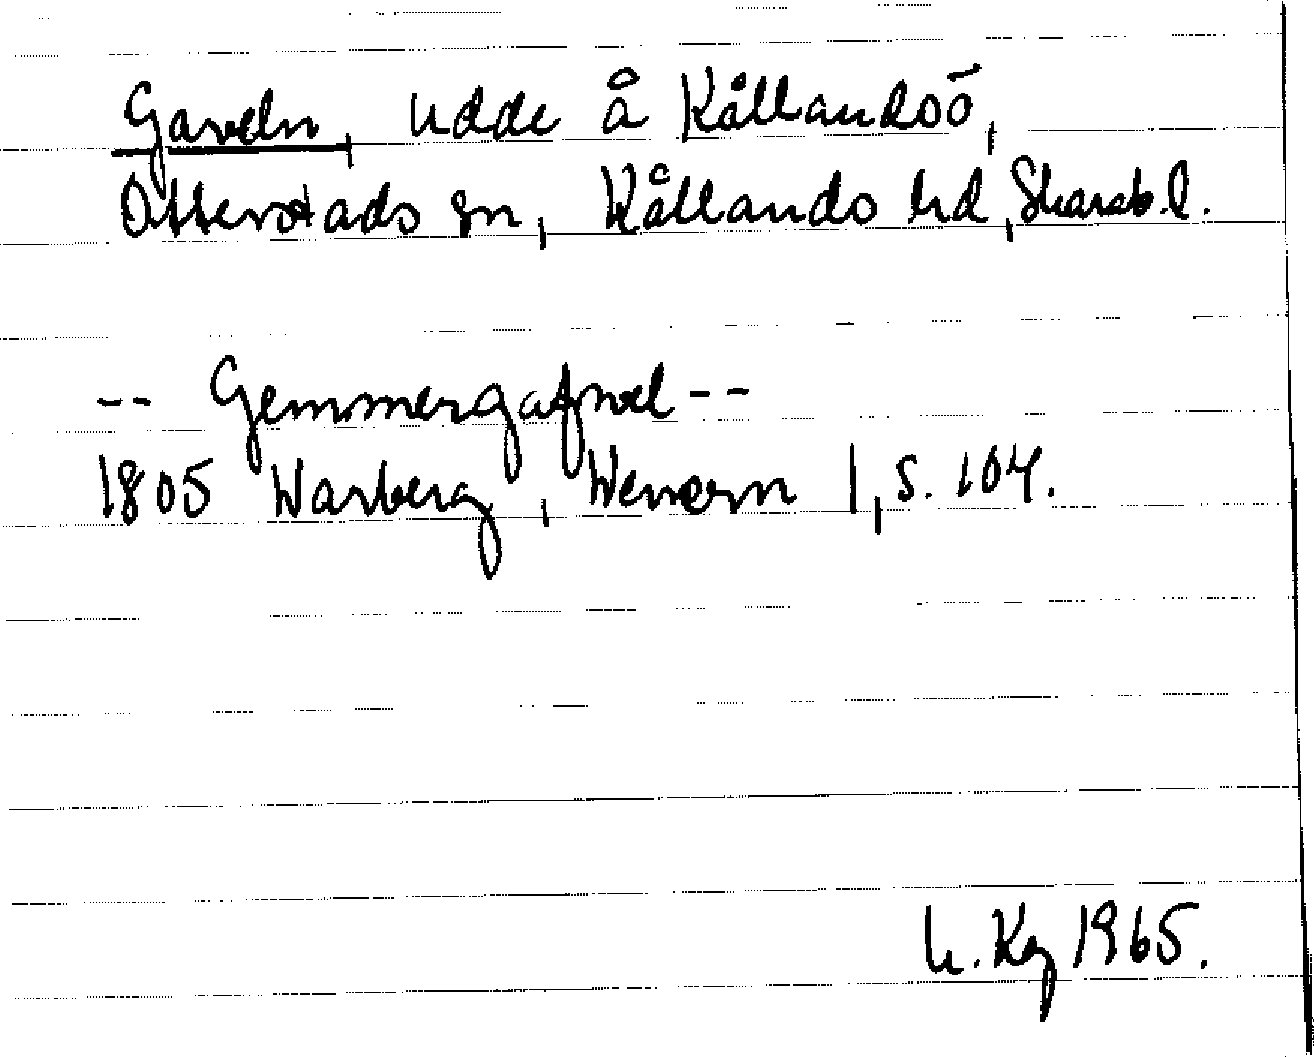 Gaveln, udde å Kållandsö,
Otterstads sn, Kållands hd, Skarab.l.
-- Gemmergafvel --
1805 Warberg, Wenern 1, s. 104.
U. Kg 1965.